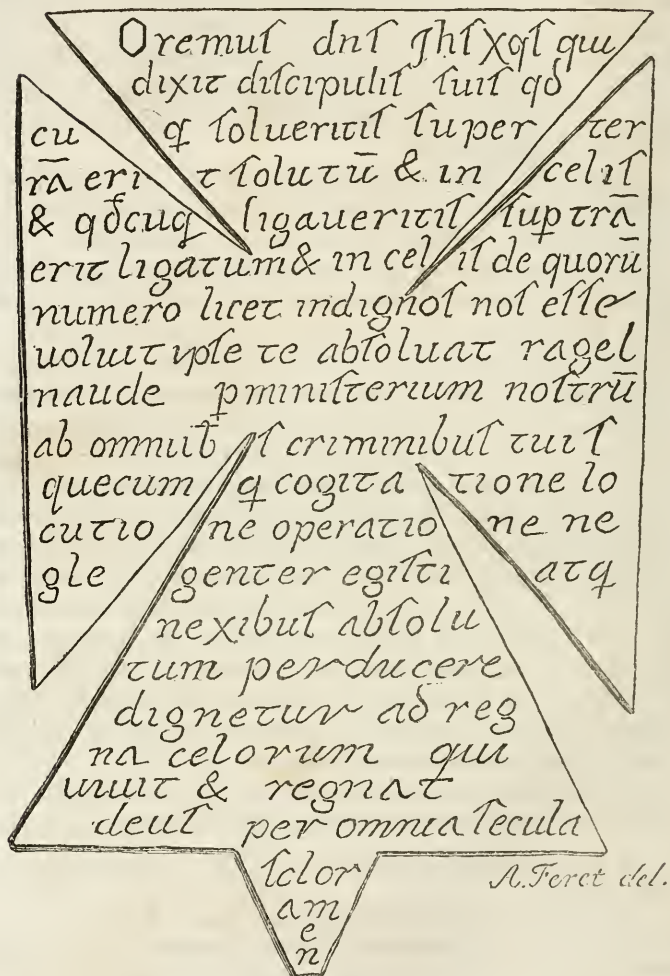 Oremuſ dn̄ſ Jhſ Xq̄ſ qui
dixit diſcipuliſ ſuiſ qđ
cu q̨ ſolueritiſ ſuper ter
rā eri t ſolutū & in celiſ
& qđcuq̨ ligaueritiſ ſuꝑ trā
erit ligatum & in cel iſ de quorū
numero licet indignoſ noſ eſſe
uoluit ipſe te abſoluat ragel
naude ꝑminiſterium noſtrū
ab omnib iſ criminibuſ tuiſ
quecum q̨ cogita tione lo
cutio ne operatio ne ne
gle genter egiſti atq̨
nexibuſ abſolu
tum perducere
dignetur ad reg
na celorum qui
uiuit & regnat
deuſ per omnia ſecula
ſclor
am
e
n
A. Feret del.